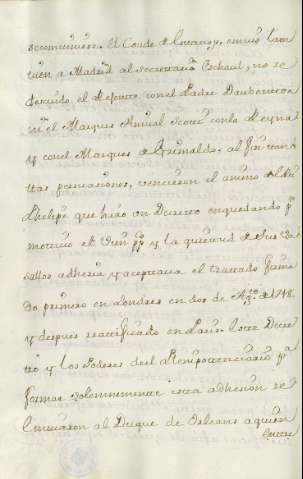 el Conde de embió tam
vien a Madrid al secretario no se
descuido el con el Padre Daubenton
ni el Marques Anival Scoti con la Reyna
y con el Marques de Grimaldo. al fin tan
ttas persuasiones, vencieron el animo de
Phelipe que hizo un Decreto en que dando pr
motivo el vien y la quietud de sus Va
sallos adheria y aceptaria el trattado firma
do primero en Londres en dos de Agto de 1718.
y despues ratificado en Paris. este Decre
tto y los Poderes del Plenipotenciario pa
firmar solemnemente esta adhesion se
embiaron al Duque de Orleans a quien